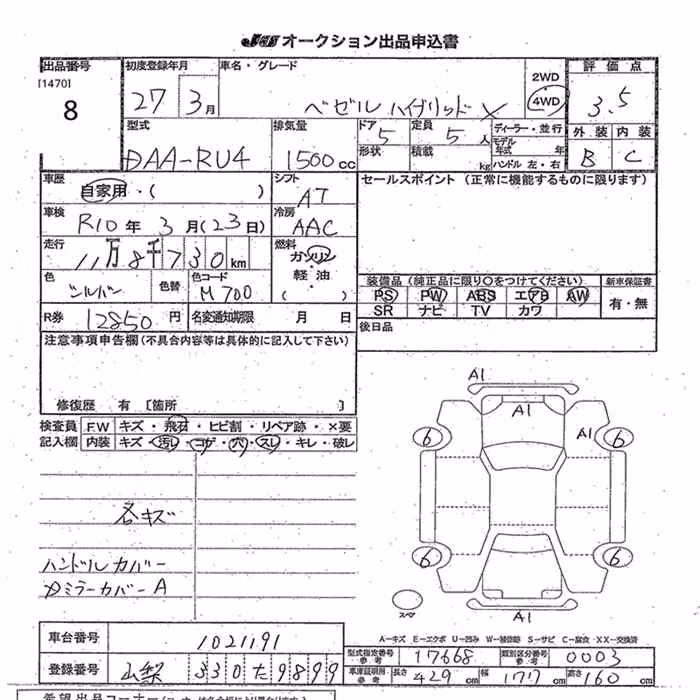 JAS オークション出品申込書
出品番号 初度登録年月 車名・グレード 評価点
[1470] 8
27 3月 ベゼル ハイブリッド X 2WD 4WD 3.5
型式 排気量 ドア 5 定員 5人 ディーラー・並行 外装 内装
DAA-RU4 1500cc 形状 積載 kg モデル年式 年 ハンドル 左・右 B C
車歴 自家用・( ) シフト AT セールスポイント (正常に機能するものに限ります)
車検 R10年 3月(23日) 冷房 AAC
走行 11万8千730km 燃料 ガソリン 軽油 ( )
色 シルバー 色替 色コード M700
装備品(純正品に限り○をつけてください) 新車保証書
PS PW ABS エアB AW 有・無
SR ナビ TV カワ
R券 12850円 名変通知期限 月 日 後日品
注意事項申告欄(不具合内容等は具体的に記入して下さい)
修復歴 有 [箇所 ]
検査員 F.W キズ・飛石・ヒビ割・リペア跡・×要
記入欄 内装 キズ・汚レ・コゲ・穴・スレ・キレ・破レ
A1
A1
A1
6 6
各キズ
ハンドルカバー
ミラーカバーA
6 6
スペア
A1
A-キズ E-エクボ U-凹み W-補修跡 S-サビ C-腐食 XX-交換済
車台番号 1021191
型式指定番号 参考 17668 類別区分番号 参考 0003
登録番号 山梨 530 た 9899
車庫証明用 参考 長さ 429cm 幅 177cm 高さ 160cm
希望出品コーナー